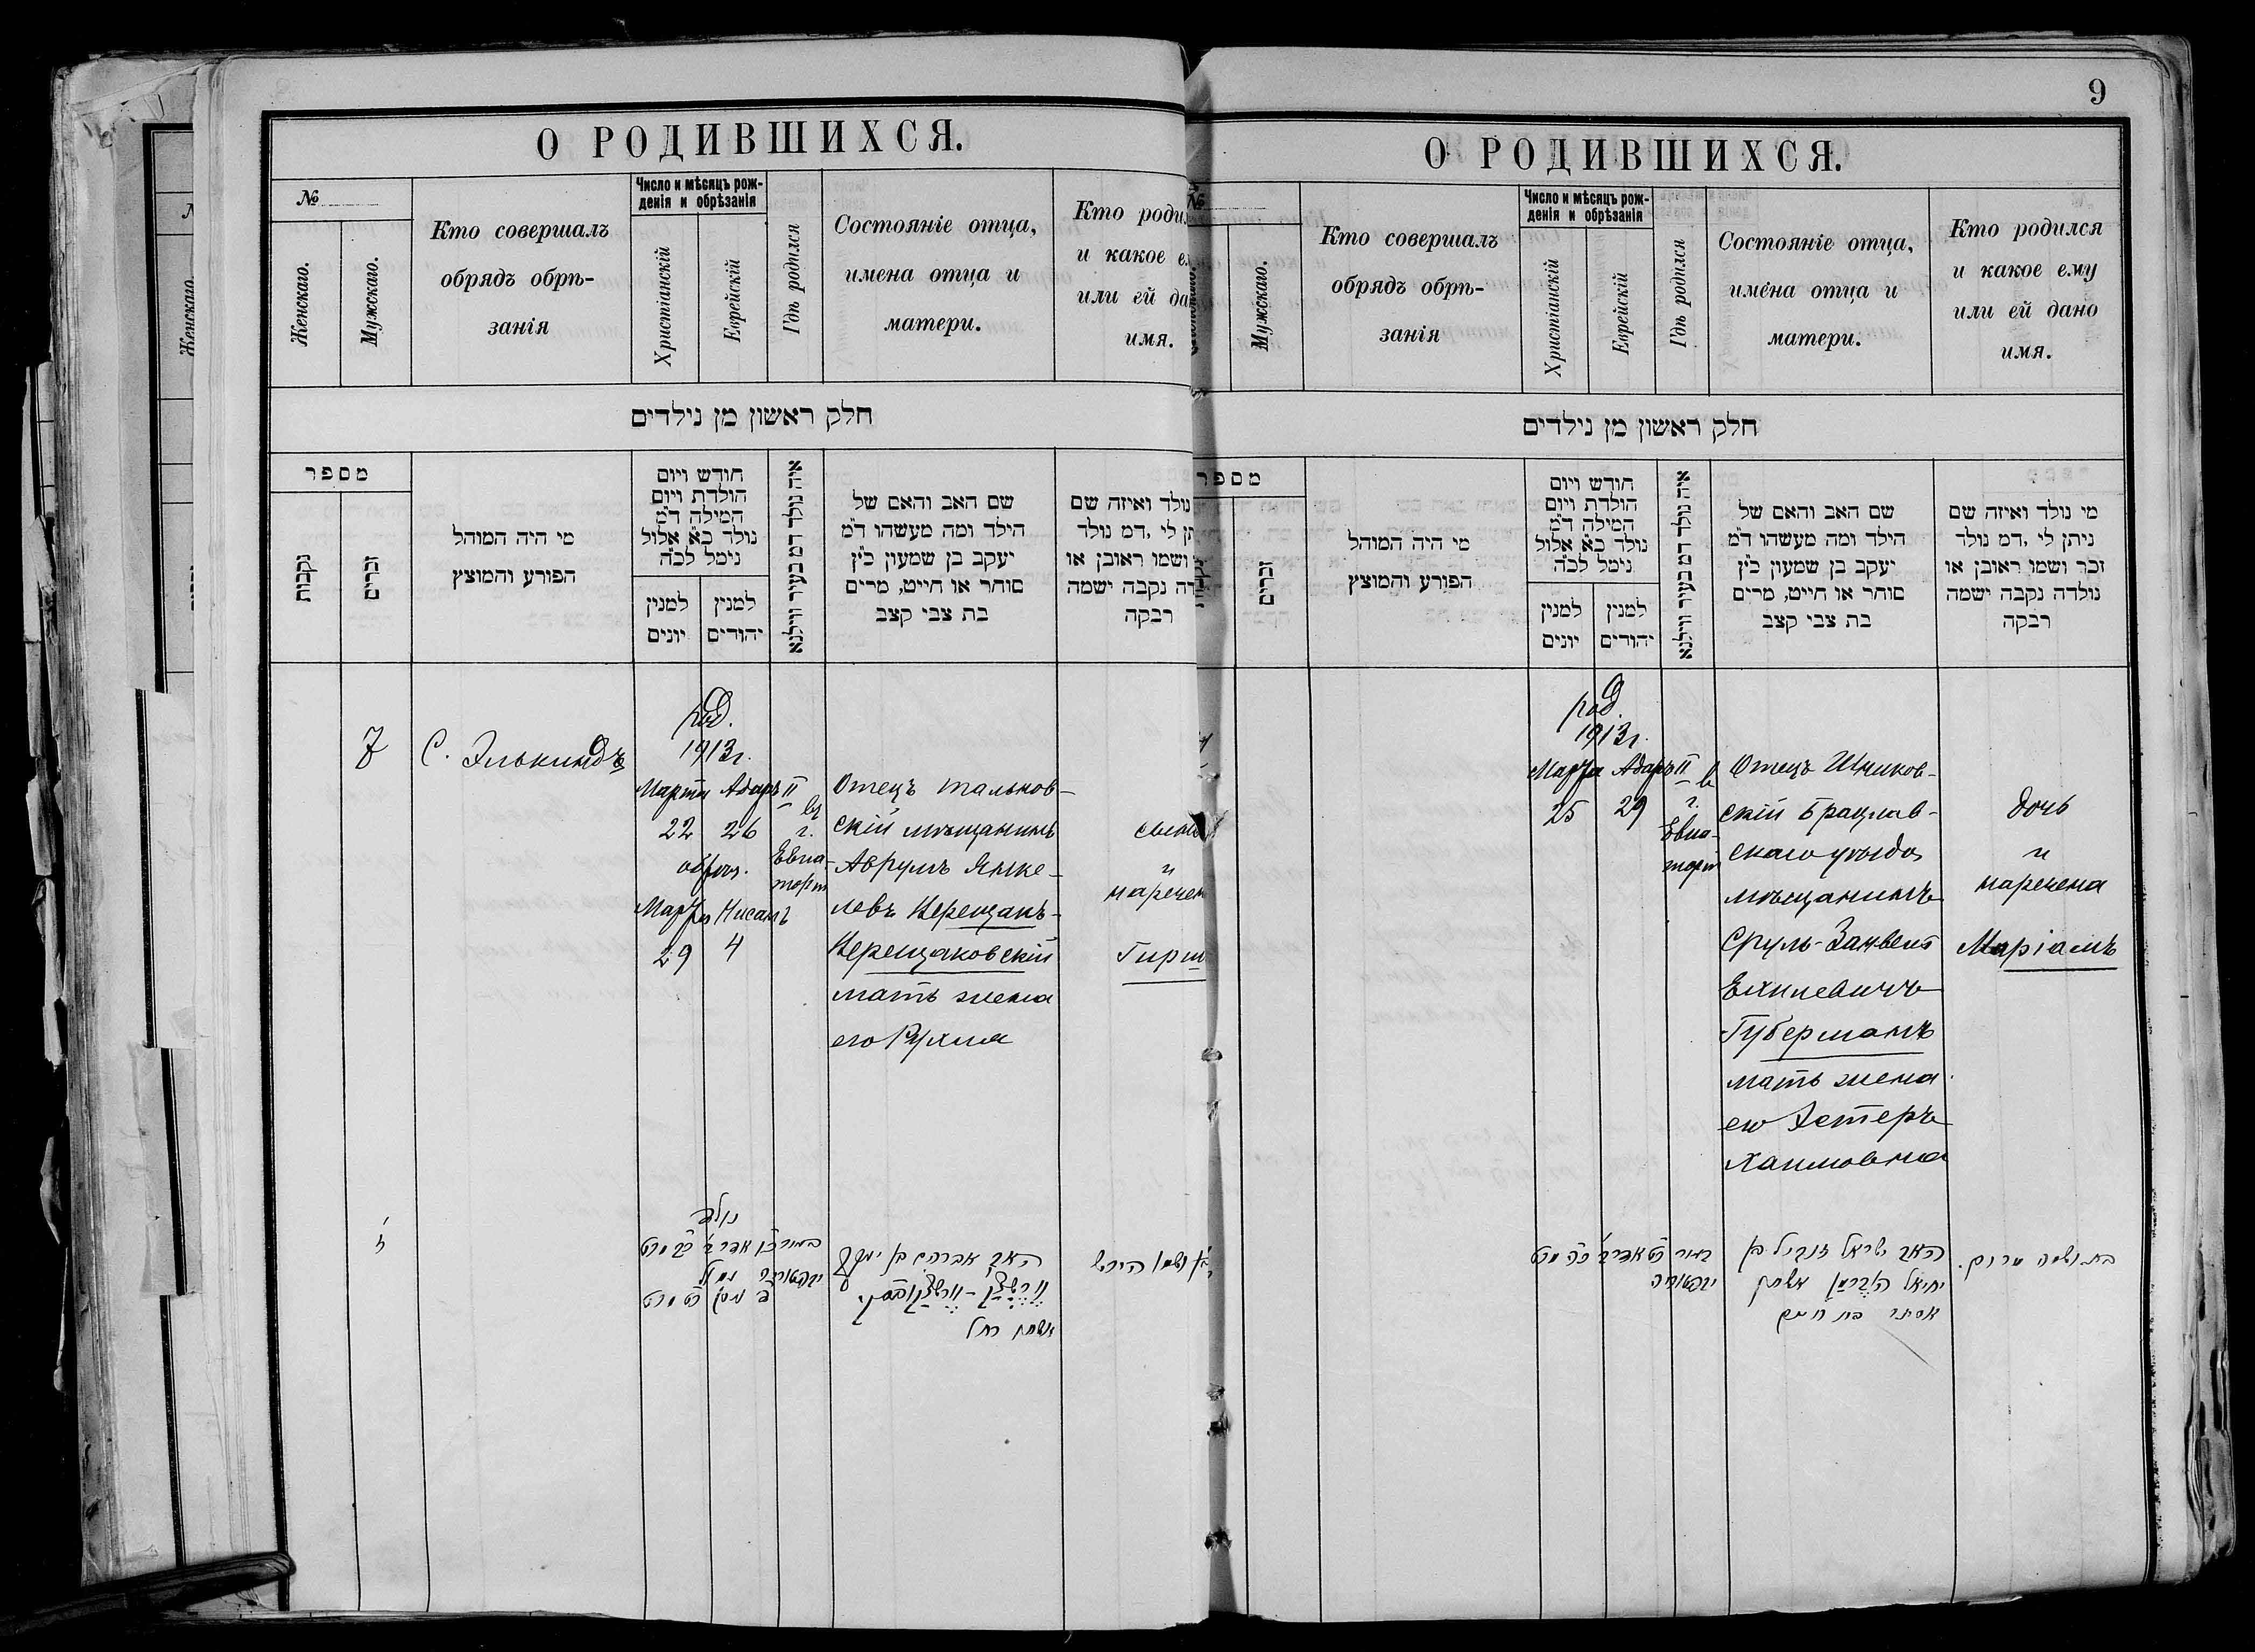 О РОДИВШИХСЯ.
№
Женскаго.
Мужскаго.
Кто совершалъ
обрядъ обрѣ-
занія
Число и мѣсяцъ рож-
денія и обрѣзанія
Христіанскій
Еврейскій
Гдѣ родился
Состояніе отца,
имена отца и
матери.
Кто роди
и какое е
или ей да
имя.
חלק ראשון מן נילדים
מספר
נקבות
זכרים
מי היה המוהל
הפורע והמוצץ
חודש ויום
הולדת ויום
המילה ד״מ
נולד כ״א אלול
נימל לכ״ה
למנין
יונים
למנין
יהודים
איה נולד דמ בעיר ווילנא
שם האב והאם של
הילד ומה מעשהו ד״מ
יעקב בן שמעון כ״ץ
סוחר או חייט, מרים
בת צבי קצב
נולד ואיזה שם
תן לי, דמ נולד
ושמו ראובן או
דה נקבה ישמה
רבקה
7
С. Элькиндъ
род.
1913 г.
Марта Адаръ II
22 26
обрѣз.
Марта Нисанъ
29 4
въ
г.
Евпа-
торіи
Отецъ тальнов-
скій мѣщанинъ
Аврумъ Янке-
левъ Верещакъ-
Верещаковскій
мать жена
его Рухля
сынъ
и
наречен
Гирш
ז
נולד
האב אברהם בן יעקב
אשתו רחל
ושמו הירש
9
О РОДИВШИХСЯ.
№
Мужскаго.
Кто совершалъ
обрядъ обрѣ-
занія
Число и мѣсяцъ рож-
денія и обрѣзанія
Христіанскій
Еврейскій
Гдѣ родился
Состояніе отца,
имена отца и
матери.
Кто родился
и какое ему
или ей дано
имя.
חלק ראשון מן נילדים
מספר
זכרים
מי היה המוהל
הפורע והמוצץ
חודש ויום
הולדת ויום
המילה ד״מ
נולד כ״א אלול
נימל לכ״ה
למנין
יונים
למנין
יהודים
איה נולד דמ בעיר ווילנא
שם האב והאם של
הילד ומה מעשהו ד״מ
יעקב בן שמעון כ״ץ
סוחר או חייט, מרים
בת צבי קצב
מי נולד ואיזה שם
ניתן לי, דמ נולד
זכר ושמו ראובן או
נולדה נקבה ישמה
רבקה
род.
1913 г.
Марта Адаръ II
25 29
в
г.
Евпа-
торіи
Отецъ Шпиков-
скій Брацлав-
скаго уѣзда
мѣщанинъ
Сруль-Занвель
Ехилевичъ
Губерманъ
мать жена
его Эстеръ
Хаимовна
дочь
и
наречена
Маріамъ
האב ישראל זנוויל בן
יחיאל הוברמן אשתו
אסתר בת חיים
בת ושמה מרים.